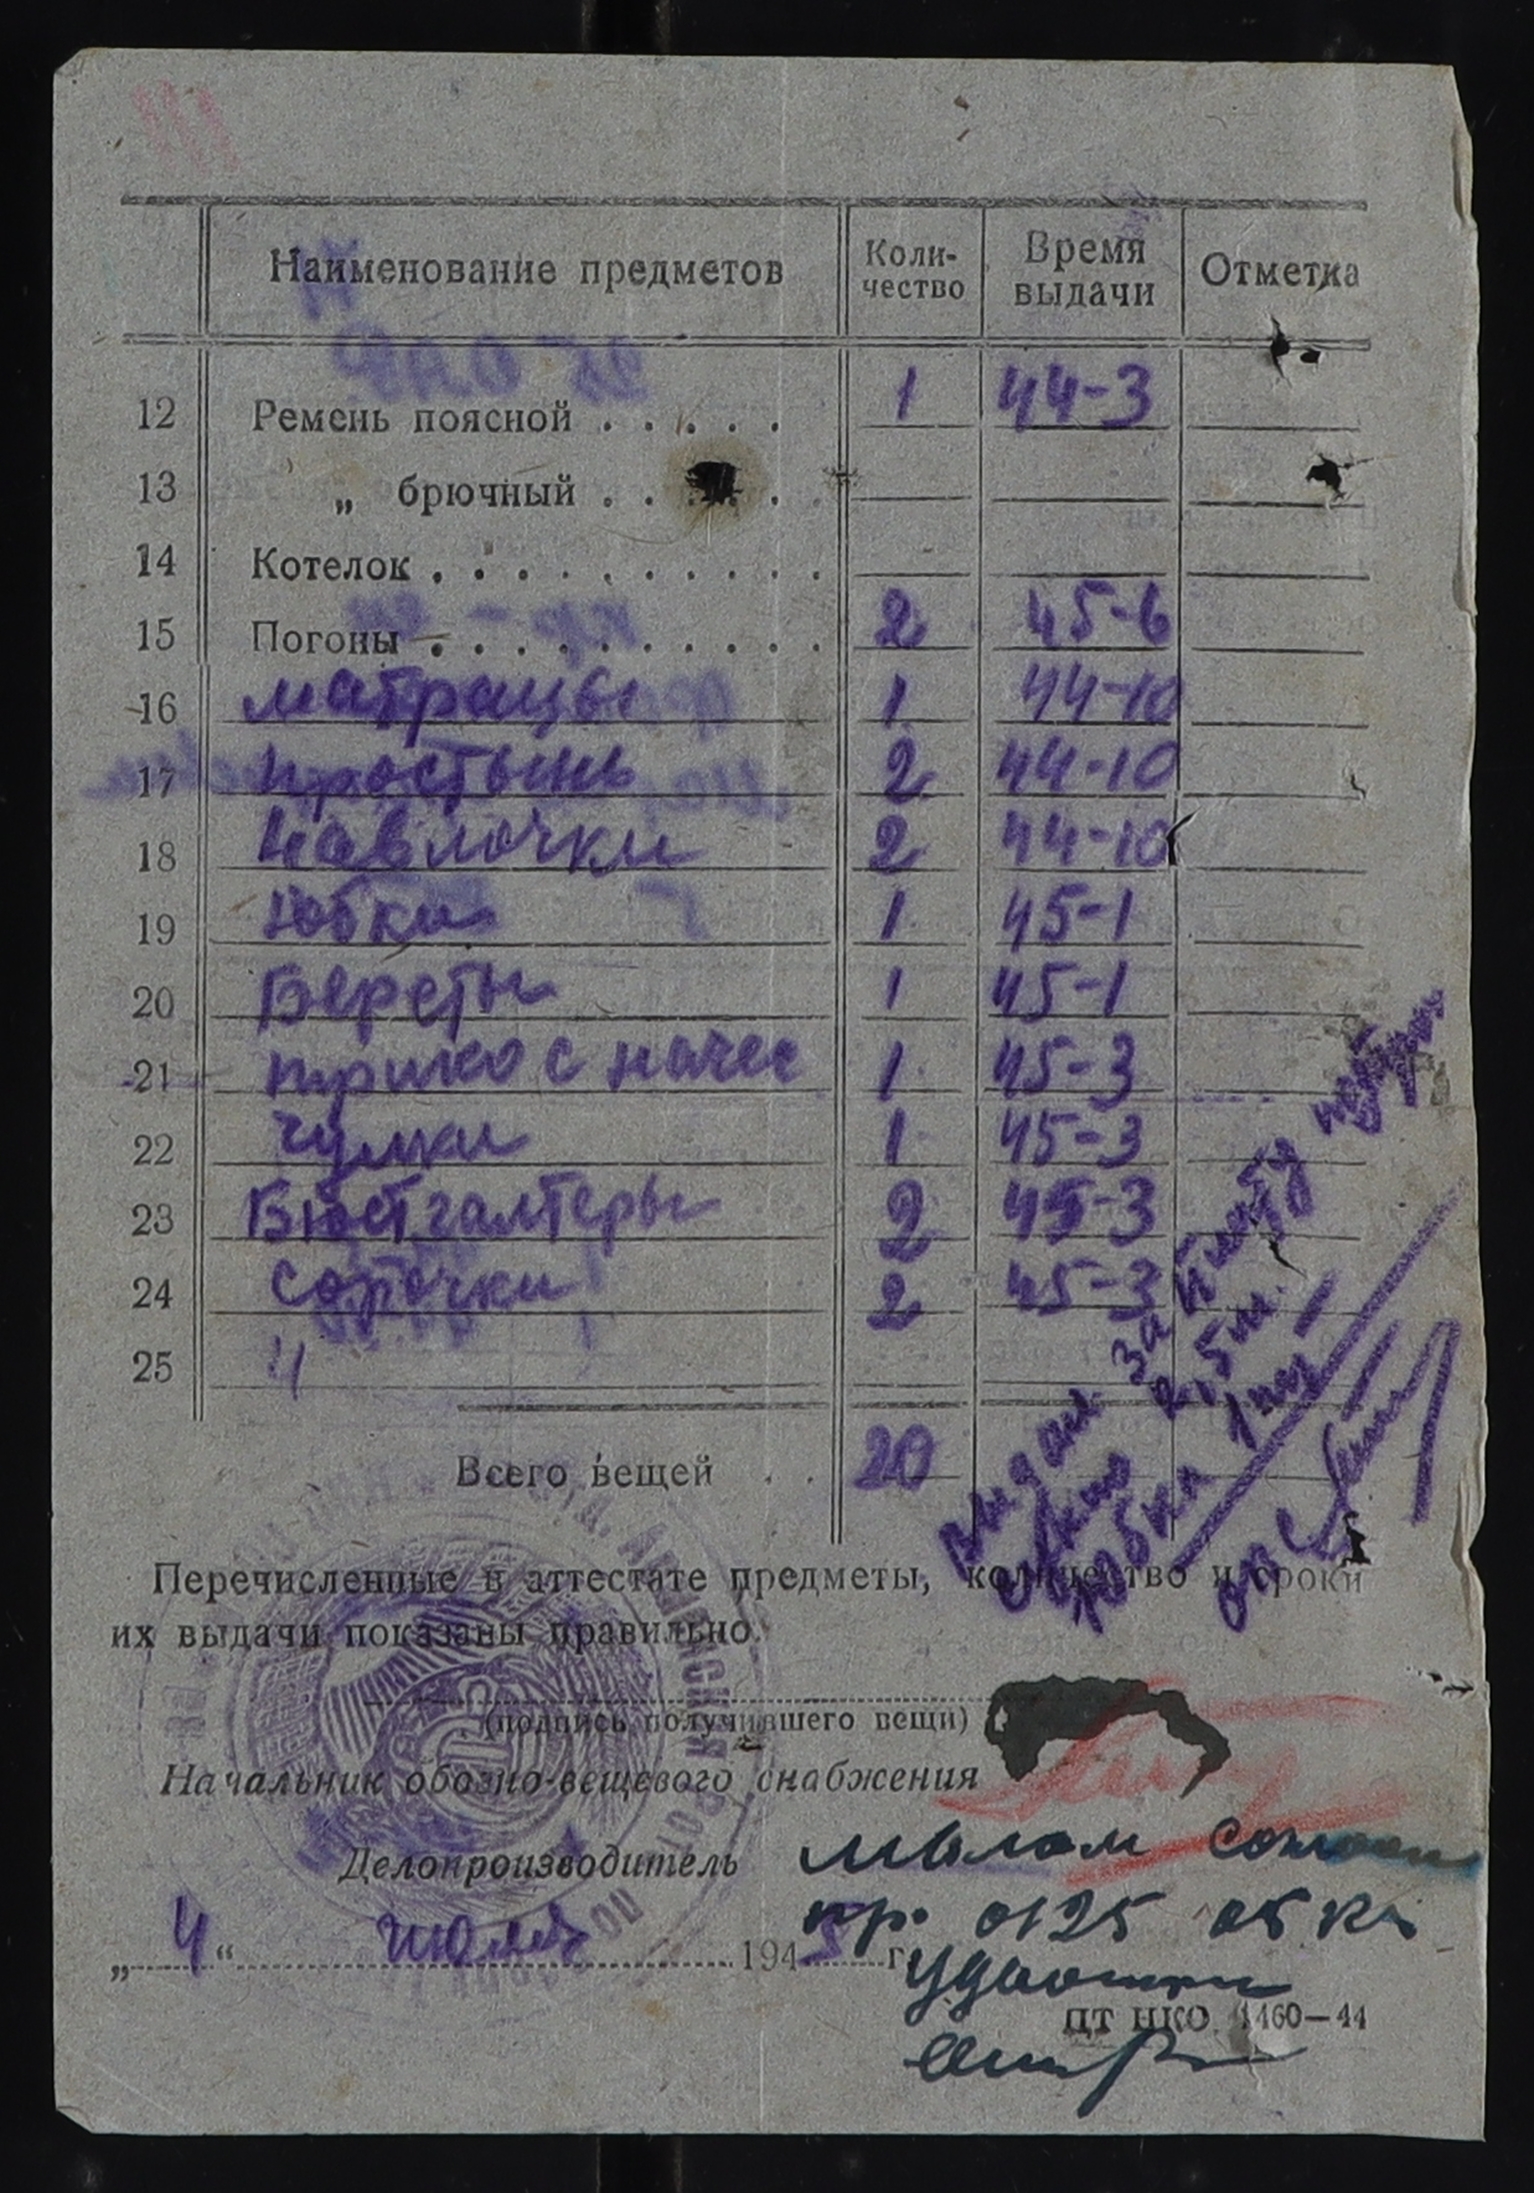 Наименование предметов Коли-чество Время выдачи Отметка
12 Ремень поясной . . . . . 1 44-3
13 „ брючный . . . . . .
14 Котелок . . . . . . . . . .
15 Погоны . . . . . . . . . . 2 45-6
16 матрацы 1 44-10
17 простынь 2 44-10
18 Навлочки 2 44-10
19 Юбки 1 45-1
20 Береты 1 45-1
21 трико с начес 1 45-3
22 чулки 1 45-3
23 Бюстгалтеры 2 45-3
24 сорочки 2 45-3
25 "
Всего вещей . . 20
выдан за плату
2,5 м.
юбка 1 шт
Перечисленные в аттестате предметы, количество и сроки
их выдачи показаны правильно.
(подпись получившего вещи)
Начальник обозно-вещевого снабжения
Делопроизводитель
„ 4 “ июля 1945 г.
пр. 0125
ЦТ НКО 1460—44